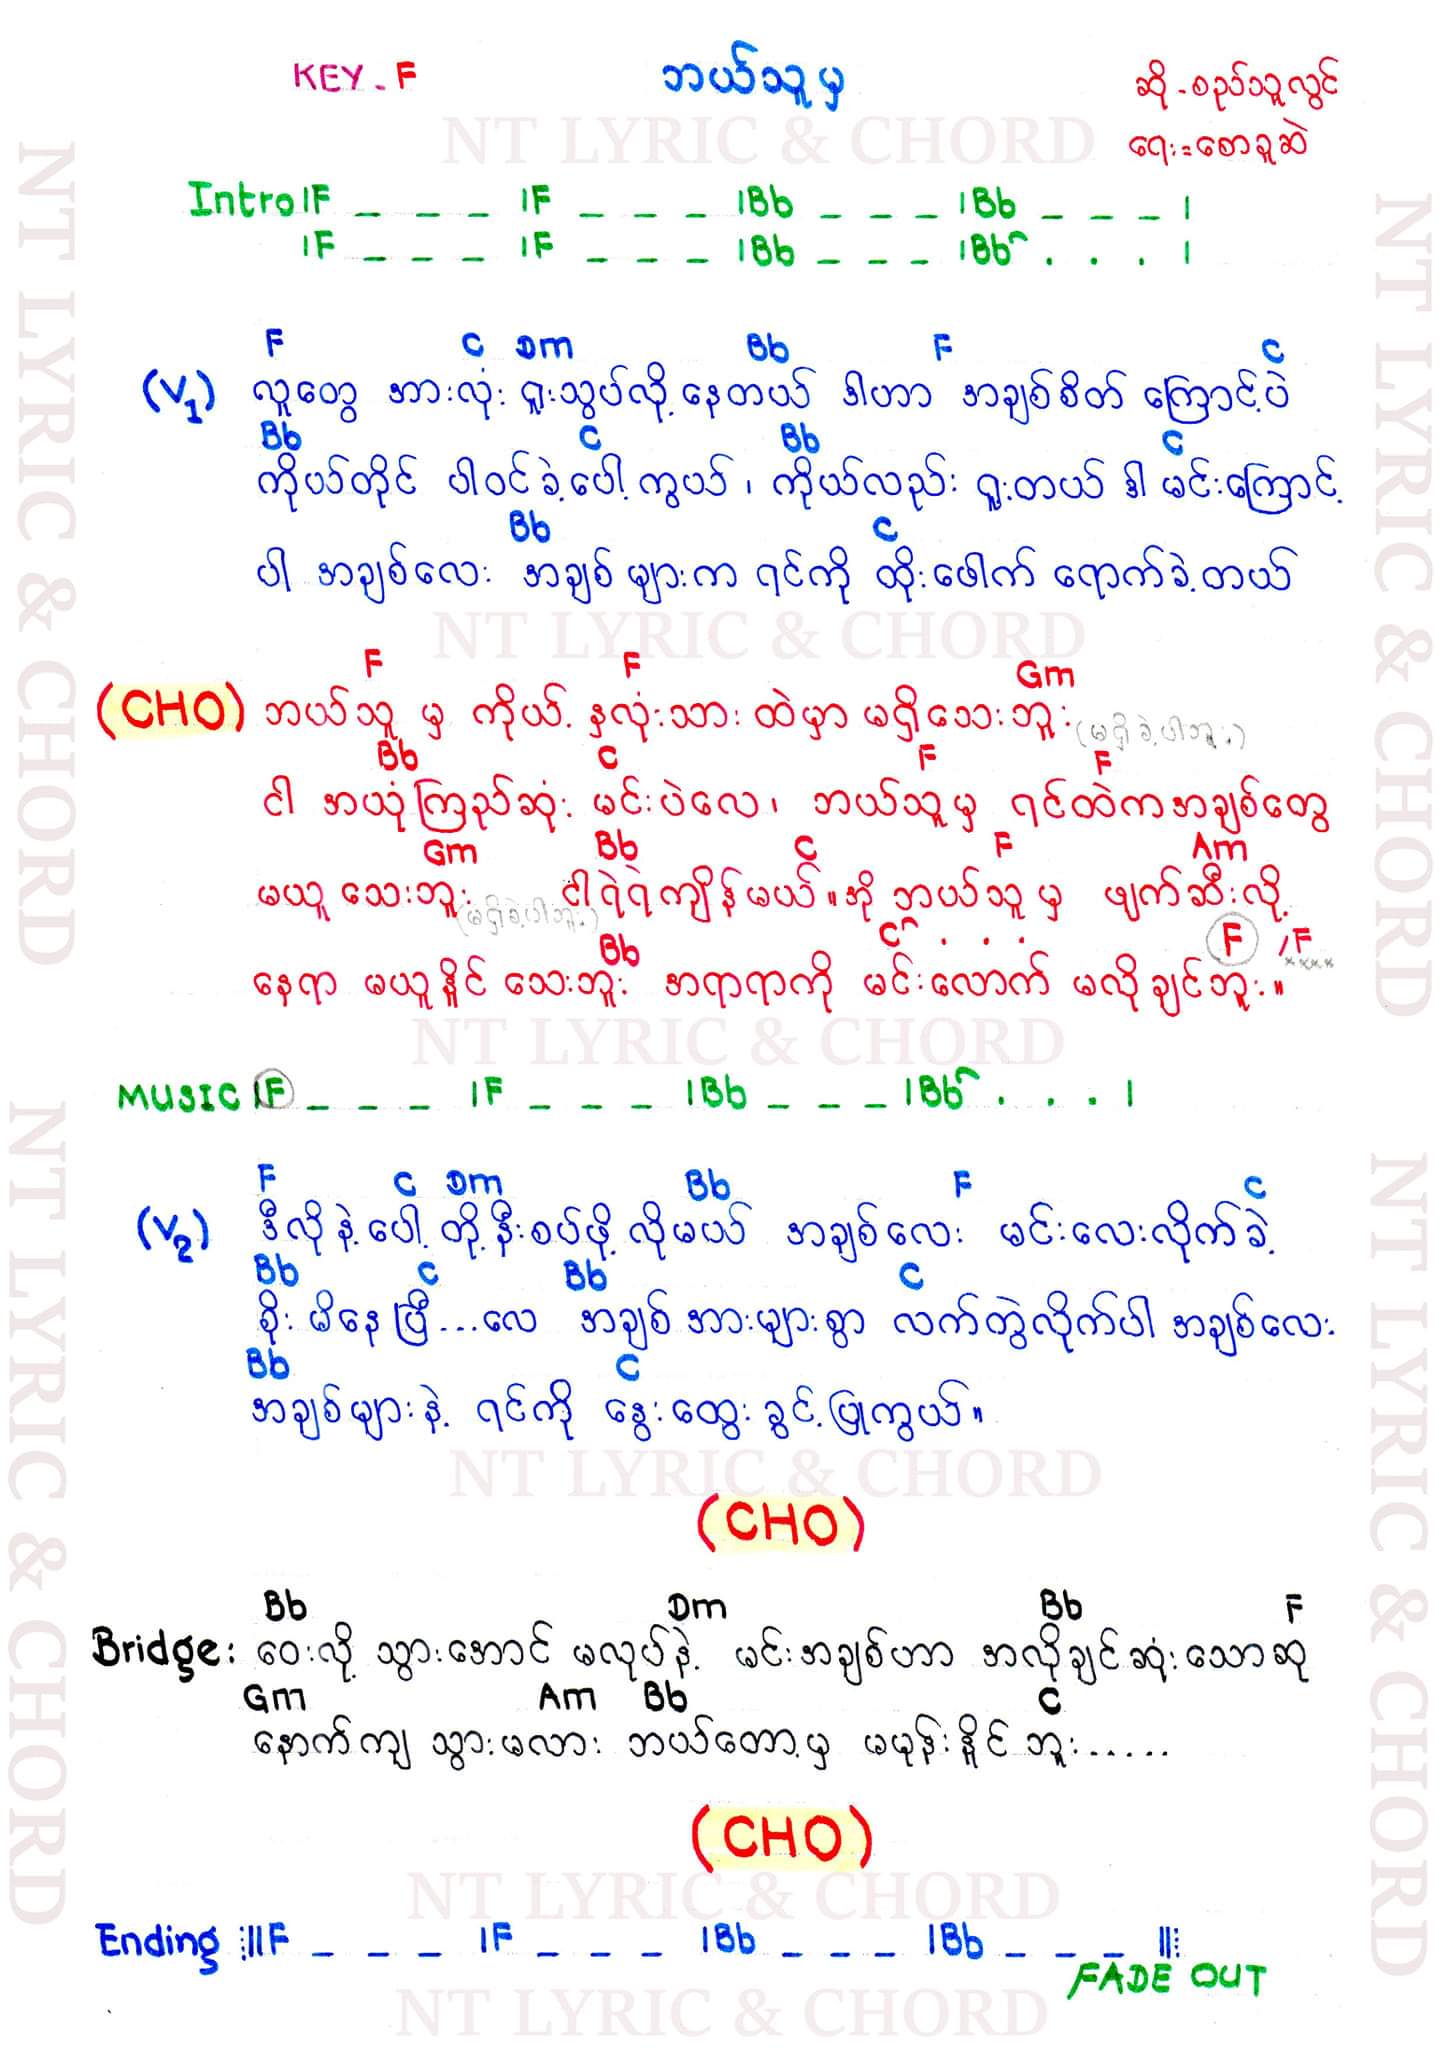 KEY - F ဘယ်သူမှ ဆို - စည်သူလွင်
ရေး = စောခူဆဲ
NT LYRIC & CHORD
Intro |F _ _ _ |F _ _ _ |Bb _ _ _ |Bb _ _ _ |
|F _ _ _ |F _ _ _ |Bb _ _ _ |Bb^ . . . |
F C Dm Bb F C
(V1) လူတွေ အားလုံး ရူးသွပ်လို့ နေတယ် ဒါဟာ အချစ်စိတ် ကြောင့်ပဲ
Bb C Bb C
ကိုယ်တိုင် ပါဝင်ခဲ့ပေါ့ကွယ်၊ ကိုယ်လည်း ရူးတယ် ဒါ မင်းကြောင့်
Bb C
ပါ အချစ်လေး အချစ်များက ရင်ကို ထိုးဖေါက် ရောက်ခဲ့တယ်
NT LYRIC & CHORD
F F Gm
(CHO) ဘယ်သူ မှ ကိုယ့် နှလုံးသား ထဲမှာ မရှိသေးဘူး (မရှိခဲ့ပါဘူး)
Bb C F F
ငါ အယုံကြည်ဆုံး မင်းပဲလေ၊ ဘယ်သူမှ ရင်ထဲကအချစ်တွေ
Gm Bb C F Am
မယူ သေးဘူး (မရှိခဲ့ပါဘူး) ငါရဲရဲကျိန်မယ်။ အို ဘယ်သူမှ ဖျက်ဆီးလို့
Bb C^ . . . F / F
နေရာ မယူနိူင် သေးဘူး အရာရာကို မင်းလောက် မလိုချင်ဘူး။
NT LYRIC & CHORD
MUSIC |F _ _ _ |F _ _ _ |Bb _ _ _ |Bb^ . . . |
F C Dm Bb F C
(V2) ဒီလိုနဲ့ပေါ့ တို့နီးစပ်ဖို့ လိုမယ် အချစ်လေး မင်းလေးလိုက်ခဲ့
Bb C Bb C
စိုး မိနေပြီ...လေ အချစ်အားများစွာ လက်တွဲလိုက်ပါ အချစ်လေး
Bb C
အချစ်များနဲ့ ရင်ကို နွေးထွေးခွင့်ပြုကွယ်။
NT LYRIC & CHORD
(CHO)
Bb Dm Bb F
Bridge: ဝေးလို့ သွားအောင် မလုပ်နဲ့ မင်းအချစ်ဟာ အလိုချင်ဆုံးသောဆု
Gm Am Bb C
နောက်ကျ သွားမလား ဘယ်တော့မှ မမုန်းနိူင်ဘူး.....
(CHO)
NT LYRIC & CHORD
Ending :||F _ _ _ |F _ _ _ |Bb _ _ _ |Bb _ _ _ ||:
FADE OUT
NT LYRIC & CHORD
NT LYRIC & CHORD
NT LYRIC & CHORD
NT LYRIC & CHORD
NT LYRIC & CHORD